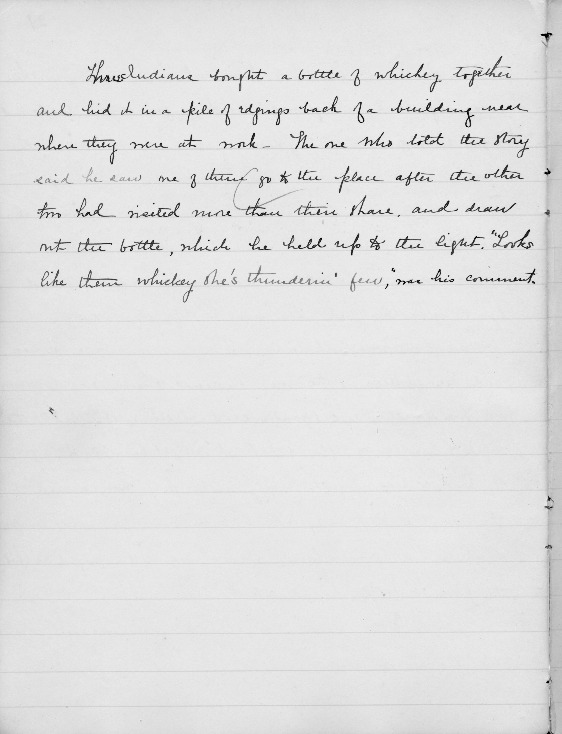 Three Indians bought a bottle of whiskey together
and hid it in a pile of edgings back of a building near
where they were at work - The one who told the story
said he saw one of them go to the place after the other
two had visited more than their share, and draw
out the bottle, which he held up to the light. "Looks
like them whiskey she's thunderin' few," was his comment.